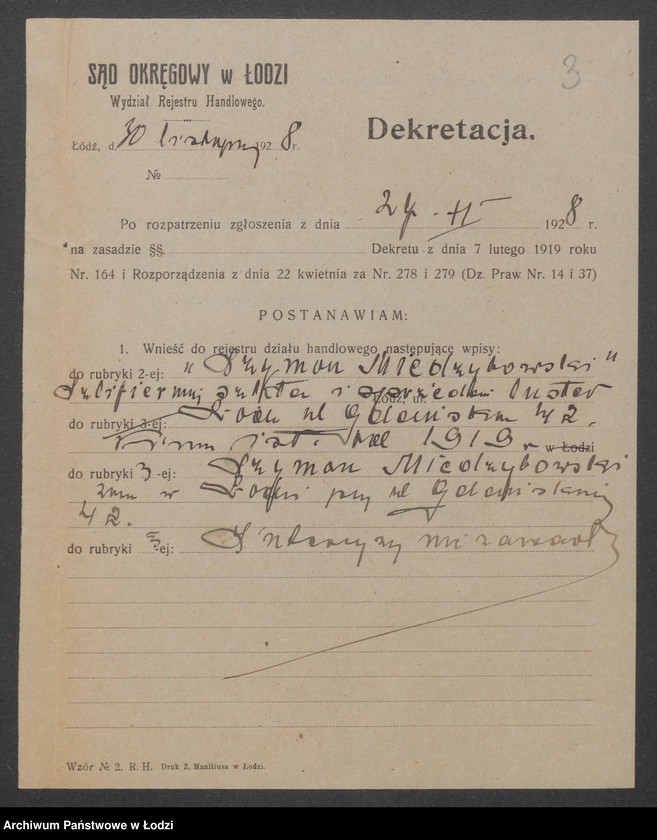 3
SĄD OKRĘGOWY w ŁODZI
Wydział Rejestru Handlowego.
Dekretacja.
Łódź, d. 30 listopada 1928 r.
№
Po rozpatrzeniu zgłoszenia z dnia 24 - XI 1928 r.
na zasadzie §§. Dekretu z dnia 7 lutego 1919 roku
Nr. 164 i Rozporządzenia z dnia 22 kwietnia za Nr. 278 i 279 (Dz. Praw Nr. 14 i 37)
POSTANAWIAM:
1. Wnieść do rejestru działu handlowego następujące wpisy:
do rubryki 2-ej: "Szymon Miedzybowski"
szkła i sprzedaż luster
Łódź, ul.
do rubryki 3-ej: Łódź ul Gdańska 42.
Firma ist. od 1919 r. w Łodzi
do rubryki 3-ej: Szymon Miedzybowski
zam w Łodzi przy ul Gdańskiej
42.
do rubryki 5-ej: Intercyzy nie zawarł
Wzór № 2. R. H. Druk Z. Manitiusa w Łodzi.
Archiwum Państwowe w Łodzi